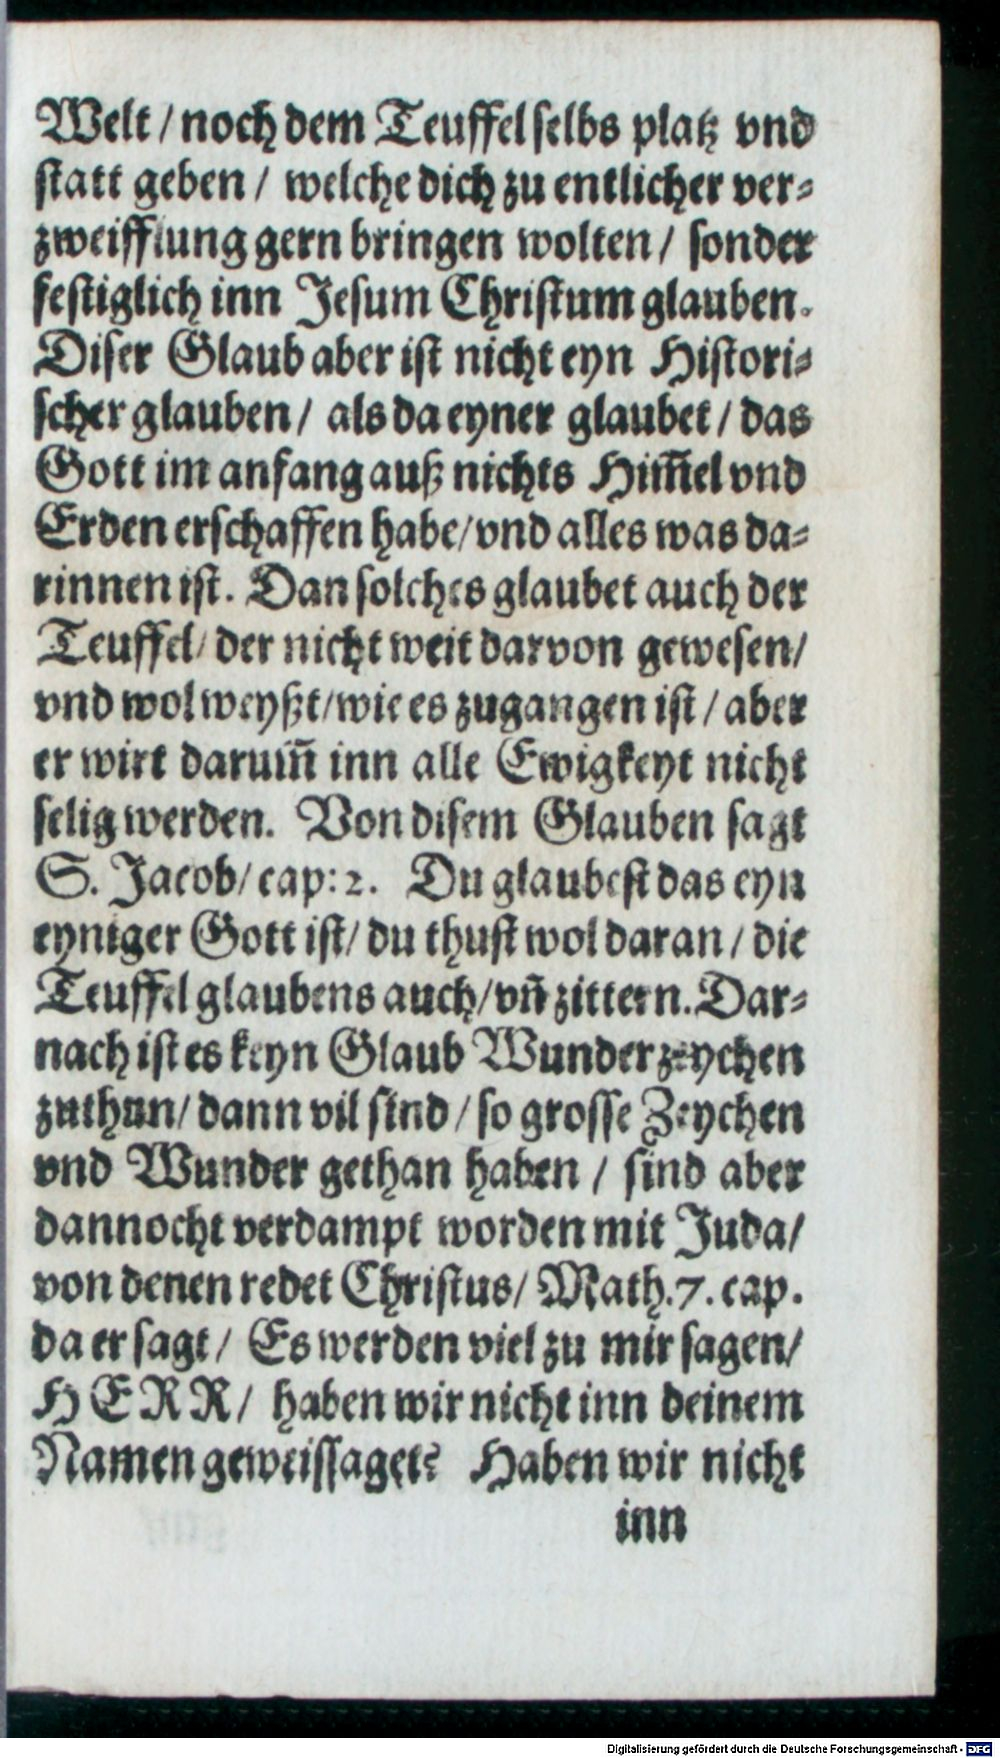 Welt / noch dem Teuffel selbs platz vnd
statt geben / welche dich zu entlicher ver-
zweifflung gern bringen wolten / sonder
festiglich inn Jesum Christum glauben.
Diser Glaub aber ist nicht eyn Histori-
scher glauben / als da eyner glaubet / das
Gott im anfang auß nichts Him̃el vnd
Erden erschaffen habe / vnd alles was da-
rinnen ist. Dan solches glaubet auch der
Teuffel / der nicht weit darvon gewesen /
vnd wol weyßt / wie es zugangen ist / aber
er wirt darum̃ inn alle Ewigkeyt nicht
selig werden. Von disem Glauben sagt
S. Jacob / cap: 2. Du glaubest das eyn
eyniger Gott ist / du thust wol daran / die
Teuffel glaubens auch / vñ zittern. Dar-
nach ist es keyn Glaub Wunderzeychen
zuthun / dann vil sind / so grosse Zeychen
vnd Wunder gethan haben / sind aber
dannocht verdampt worden mit Juda /
von denen redet Christus / Math. 7. cap.
da er sagt / Es werden viel zu mir sagen /
HERR / haben wir nicht inn deinem
Namen geweissaget? Haben wir nicht
inn
Digitalisierung gefördert durch die Deutsche Forschungsgemeinschaft - DFG